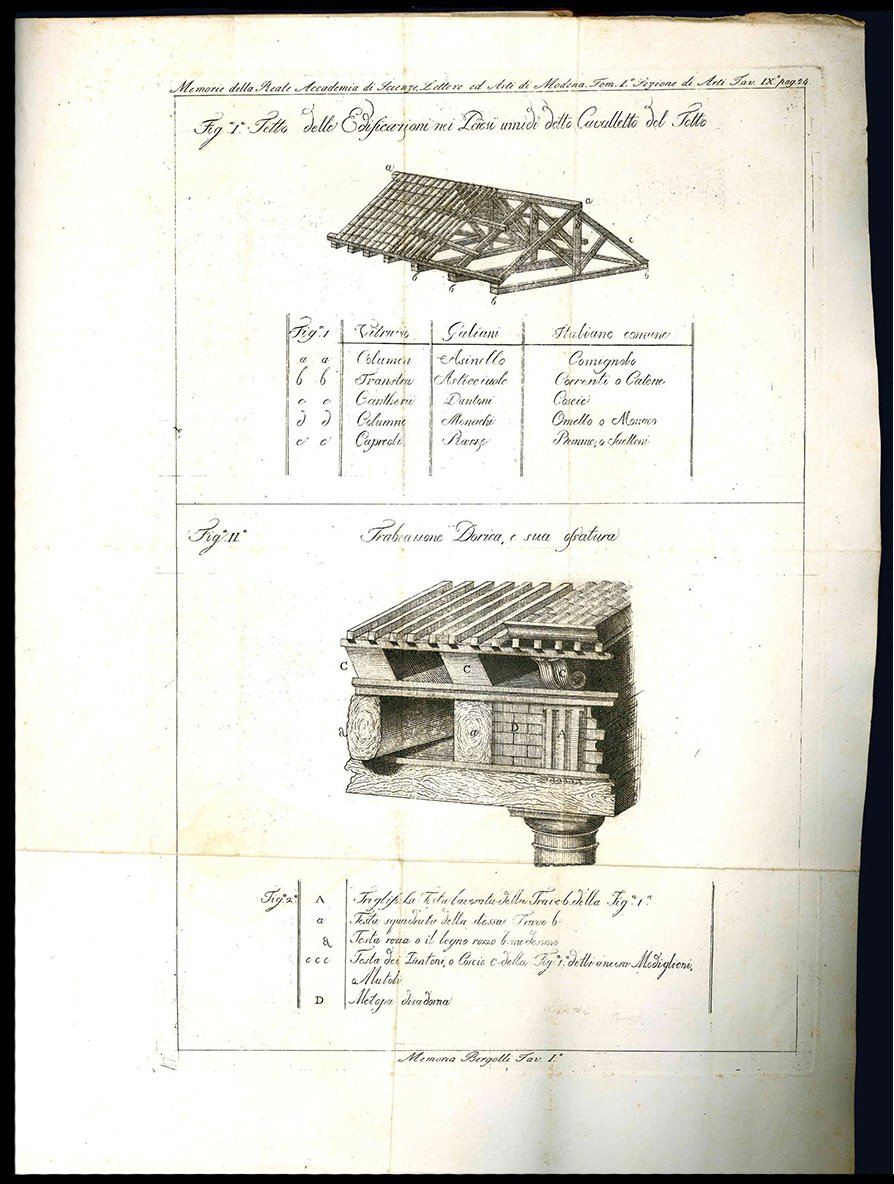 Memorie della Reale Accademia di Scienze, Lettere ed Arti di Modena. Tom. I.º Sezione di Arti Tav. IX.ª pag. 24
Fig.ª I.ª Tetto delle Edificazioni nei Paesi umidi detto Cavalletto del Tetto
a
a
c
b
b
b
b
b
Fig.ª 1 Vitruvio Galiani Italiano comune
a a Columen Asinello Comignolo
b b Transtra Asticciuole Correnti o Catene
c c Cantherii Puntoni Coscie
d d Columne Monachi Omello o Monaco
e e Capreoli Razze
Fig.ª II.ª Trabeazione Dorica, e sua ossatura
C C C
a a D A
Fig.ª 2.ª A Triglifi. La Testa lavorata della Trave b. della Fig.ª 1.ª
a Testa squadrata della stessa Trave b.
a Testa rozza o il legno rozzo b. medesimo
c c c Testa dei Puntoni, o Coscie c. della Fig.ª 1.ª detti ancora Modiglioni,
o Mutoli
D Metopa disadorna
Memoria Bergolli Tav. I.ª